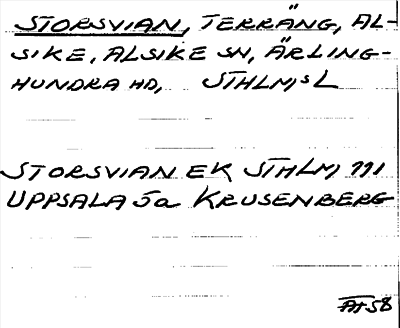 STORSVIAN, TERRÄNG, AL-
SIKE, ALSIKE SN, ÄRLING-
HUNDRA HD, STHLMS L
STORSVIAN EK STHLM 111
UPPSALA 5a KRUSENBERG
AH 58